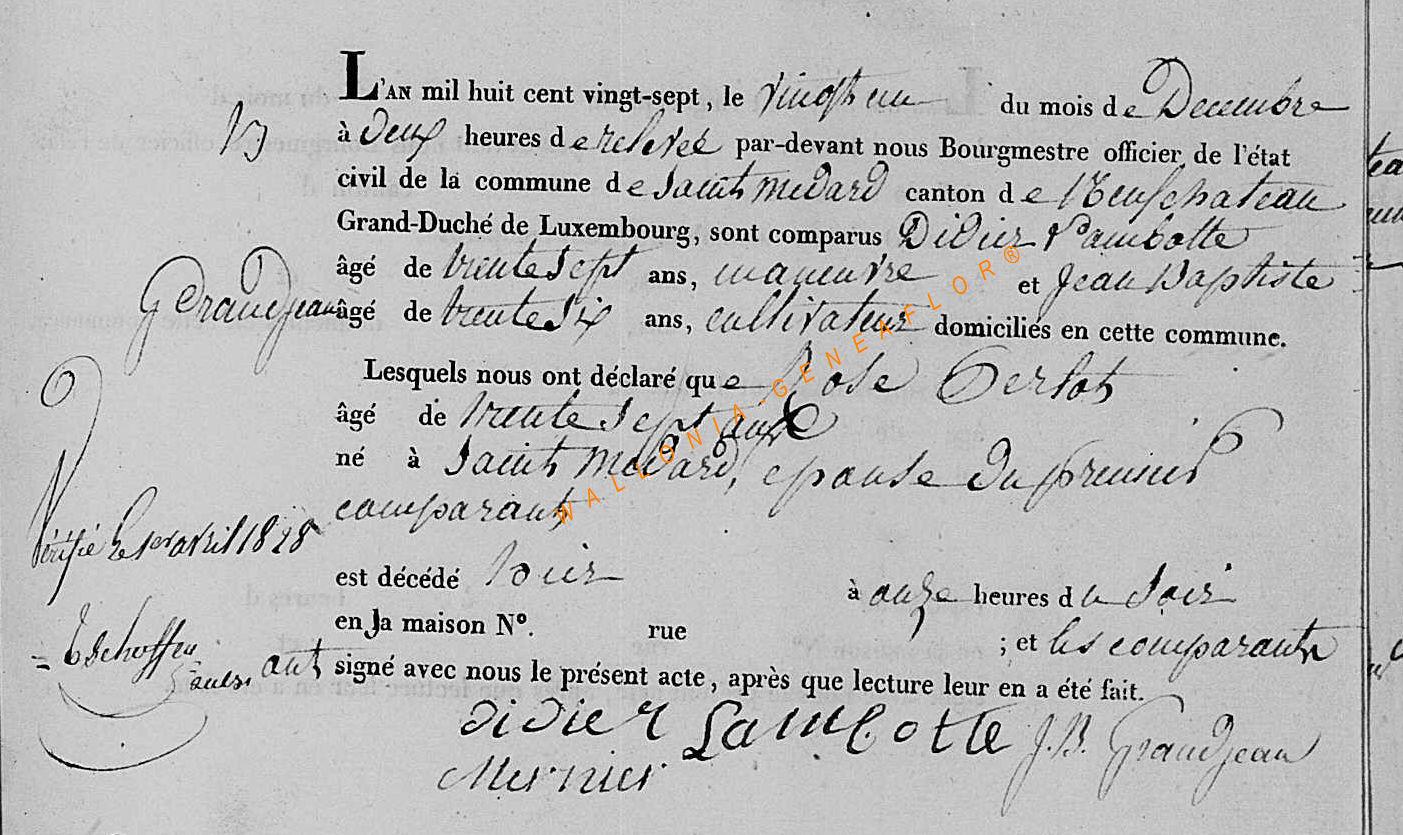 L'AN mil huit cent vingt-sept, le vingt un du mois de Decembre
13
à deux heures de relevée par-devant nous Bourgmestre officier de l'état
civil de la commune de Saint Medard canton de Neufchateau
Grand-Duché de Luxembourg, sont comparus Didier Lambotte
âgé de trente sept ans, maneuvre et Jean Baptiste
Grandjean âgé de trente Six ans, cultivateur domiciliés en cette commune.
Lesquels nous ont déclaré que Rose
âgé de trente Sept ans
né à Saint Medard, epouse du premier
comparant
Vérifié le 1er avril 1828
est décédé hier à onze heures du Soir
en la maison N°. rue ; et les comparants
Tschoffen
ont signé avec nous le présent acte, après que lecture leur en a été fait.
Didier Lambotte J. B. Grandjean
Mernier
WALLONIA-GENEAFLOR®